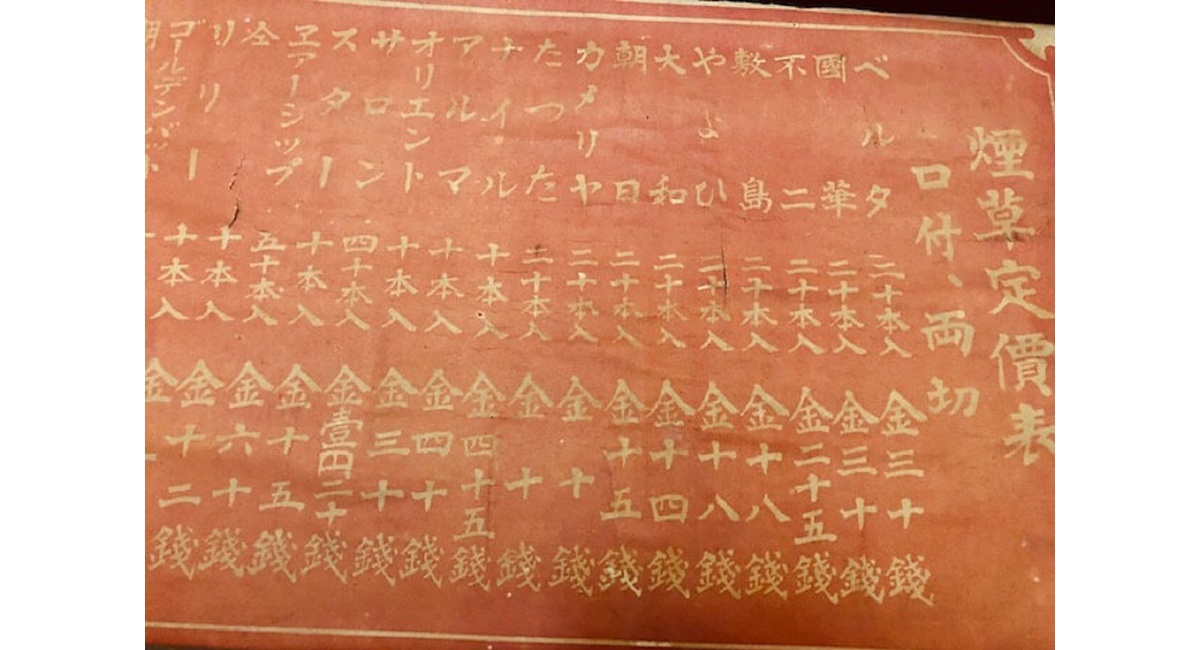 煙草定價表
口付、両切
ベルタ 二十本入 金三十錢
國華 二十本入 金三十錢
不二 二十本入 金二十五錢
敷島 二十本入 金十八錢
やよひ 二十本入 金十八錢
大和 二十本入 金十四錢
朝日 二十本入 金十五錢
カメリヤ 二十本入 金十錢
たつた 二十本入 金十錢
ナイル 十本入 金四十五錢
アルマ 十本入 金四十錢
オリエント 十本入 金三十錢
サロン 四十本入 金壹円二十錢
スター 十本入 金十五錢
ヱアーシップ 五十本入 金六十錢
仝 十本入 金十二錢
リリー 十本入 金
ゴールデンバット